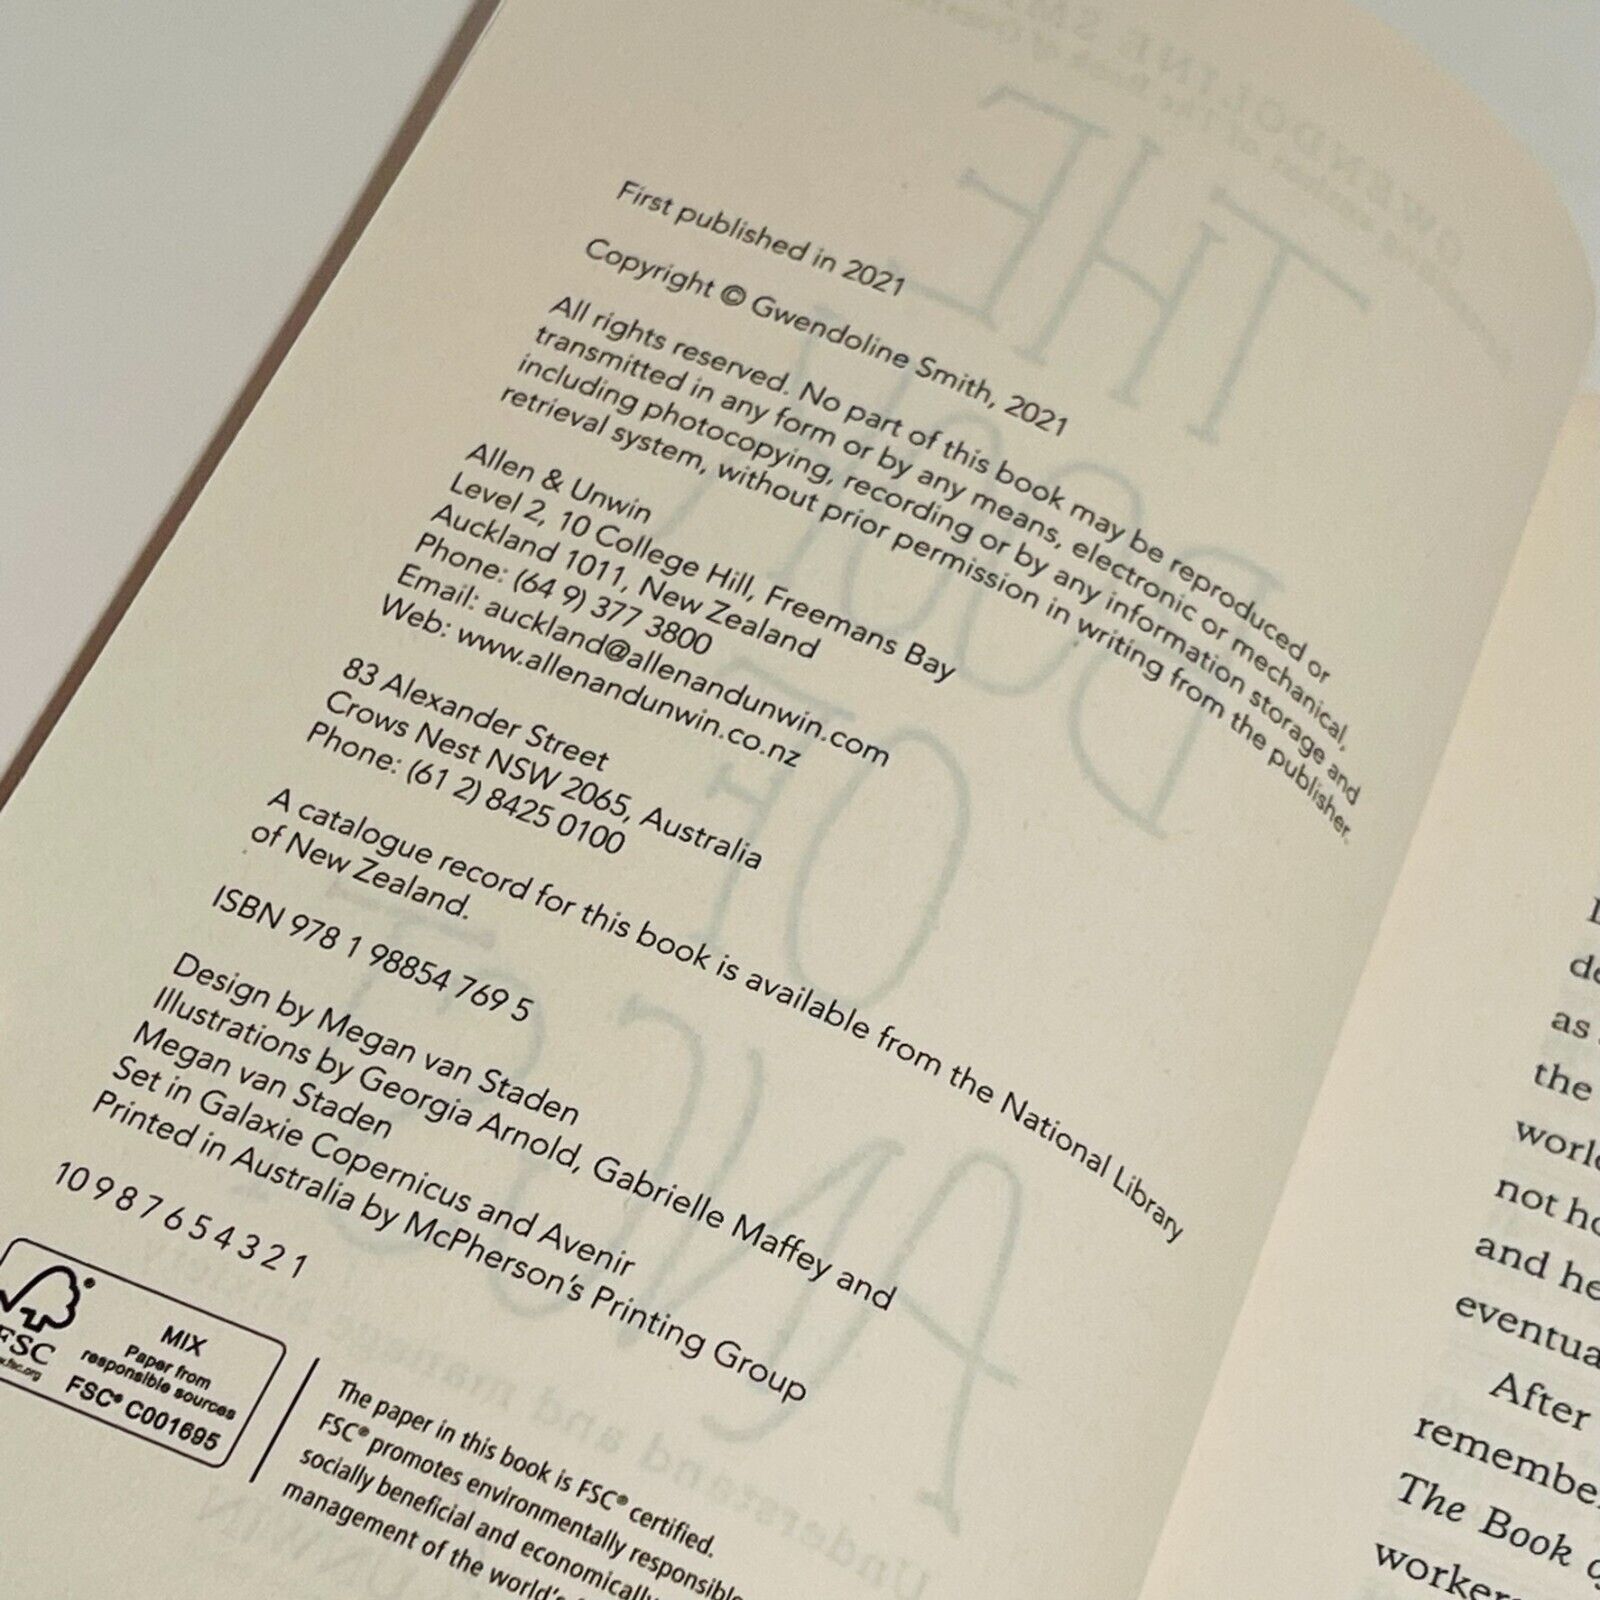 First published in 2021
Copyright © Gwendoline Smith, 2021
All rights reserved. No part of this book may be reproduced or
transmitted in any form or by any means, electronic or mechanical,
including photocopying, recording or by any information storage and
retrieval system, without prior permission in writing from the publisher.
Allen & Unwin
Level 2, 10 College Hill, Freemans Bay
Auckland 1011, New Zealand
Phone: (64 9) 377 3800
Email: auckland@allenandunwin.com
Web: www.allenandunwin.co.nz
83 Alexander Street
Crows Nest NSW 2065, Australia
Phone: (61 2) 8425 0100
A catalogue record for this book is available from the National Library
of New Zealand.
ISBN 978 1 98854 769 5
Design by Megan van Staden
Illustrations by Georgia Arnold, Gabrielle Maffey and
Megan van Staden
Set in Galaxie Copernicus and Avenir
Printed in Australia by McPherson's Printing Group
10 9 8 7 6 5 4 3 2 1
FSC®
MIX
Paper from
responsible sources
FSC® C001695
The paper in this book is FSC® certified.
FSC® promotes environmentally responsible
socially beneficial and economically
management of the world's
as
the
not
and
After
The Book
THE
BOOK
OF
ANGST
Understand and manage